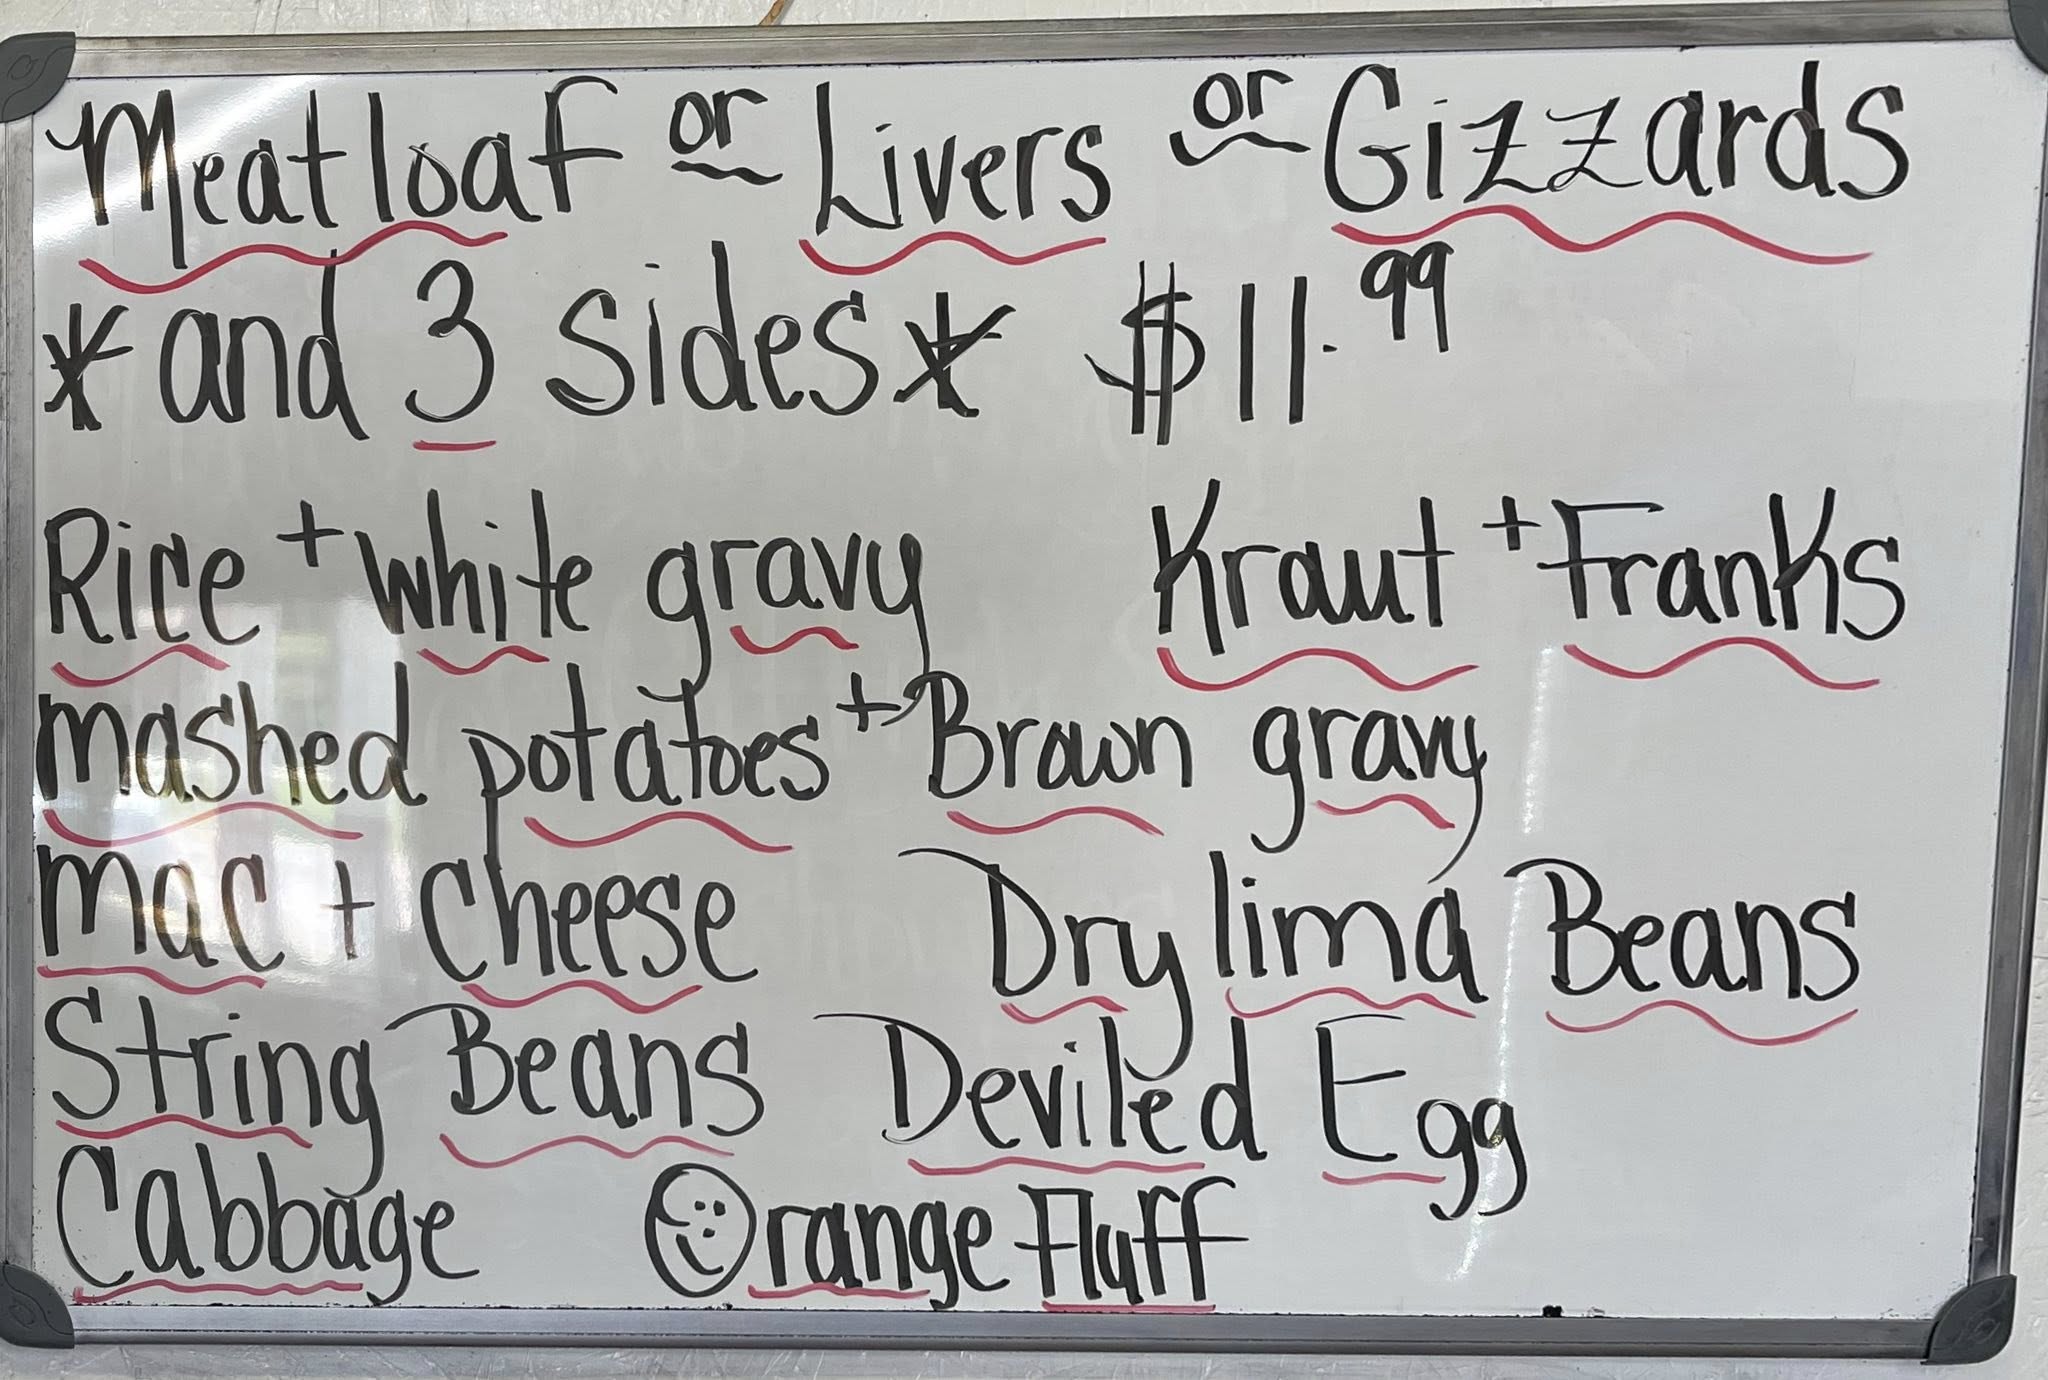 Meatloaf or Livers or Gizzards
* and 3 sides * $11.99
Rice + white gravy Kraut + Franks
mashed potatoes + Brown gravy
mac + cheese Dry lima Beans
String Beans Deviled Egg
Cabbage Orange Fluff